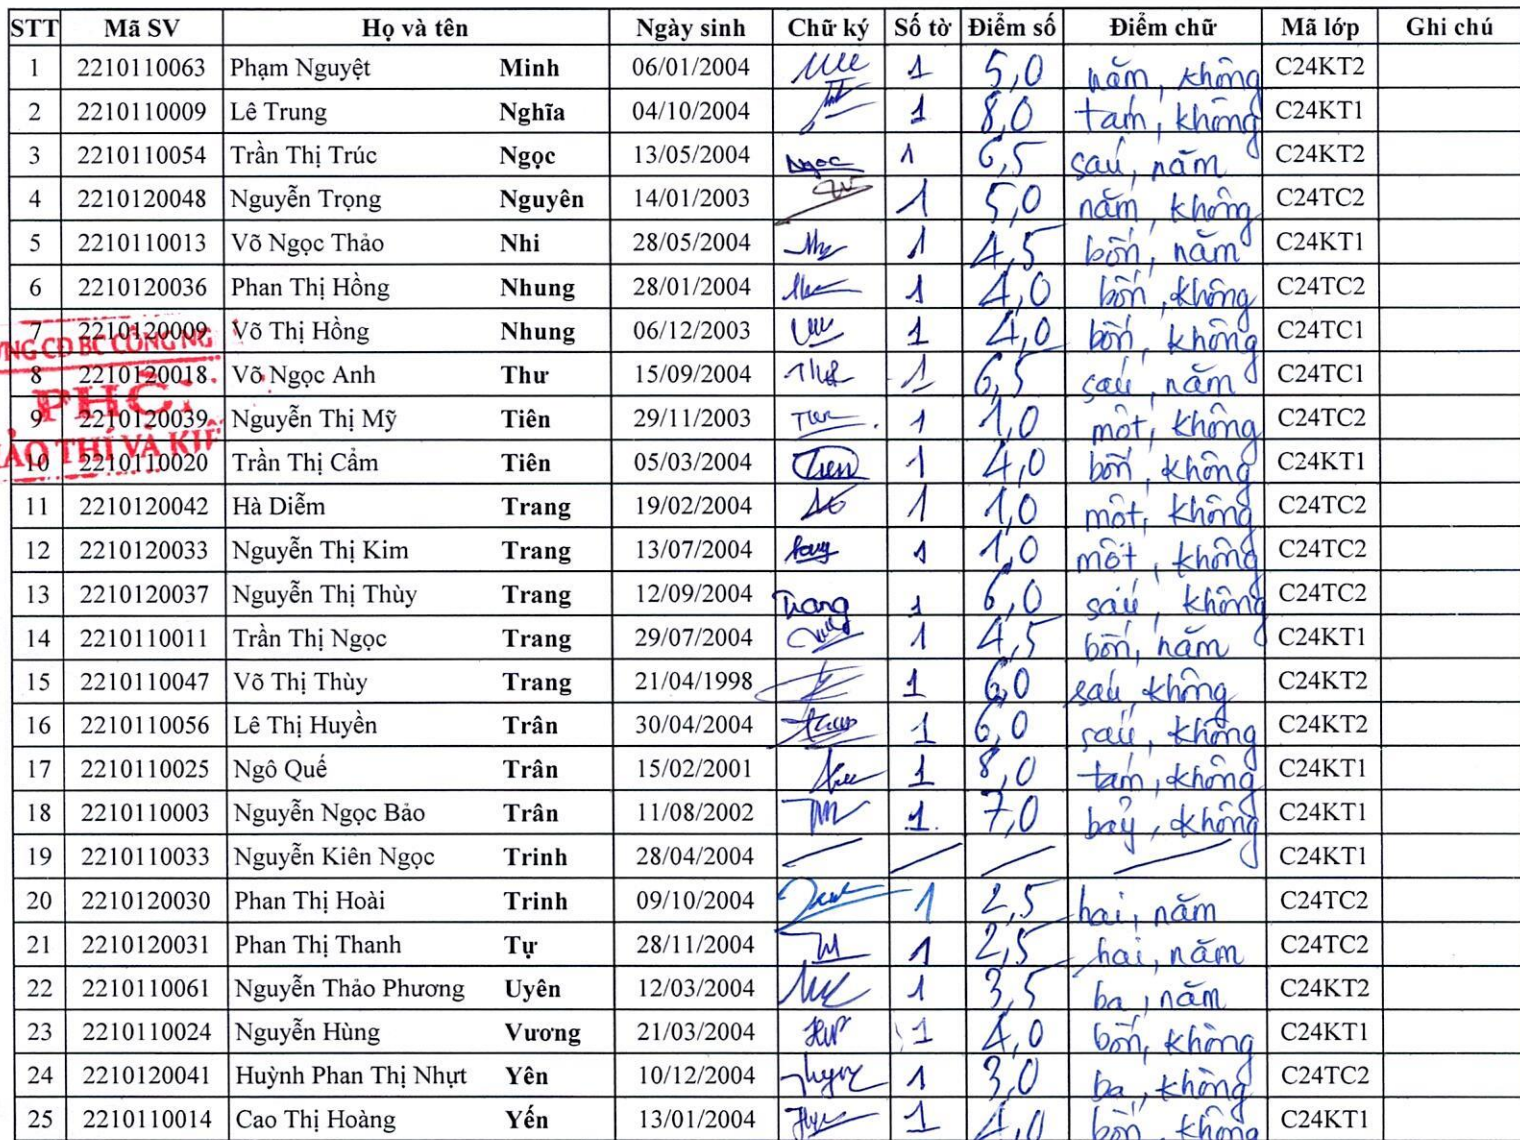 STT Mã SV Họ và tên Ngày sinh Chữ ký Số tờ Điểm số Điểm chữ Mã lớp Ghi chú
1 2210110063 Phạm Nguyệt Minh 06/01/2004 1 5,0 năm, không C24KT2
2 2210110009 Lê Trung Nghĩa 04/10/2004 1 8,0 tám, không C24KT1
3 2210110054 Trần Thị Trúc Ngọc 13/05/2004 Ngọc 1 6,5 sáu, năm C24KT2
4 2210120048 Nguyễn Trọng Nguyên 14/01/2003 1 5,0 năm, không C24TC2
5 2210110013 Võ Ngọc Thảo Nhi 28/05/2004 1 4,5 bốn, năm C24KT1
6 2210120036 Phan Thị Hồng Nhung 28/01/2004 1 4,0 bốn, không C24TC2
7 2210120009 Võ Thị Hồng Nhung 06/12/2003 1 4,0 bốn, không C24TC1
CĐ BC CÔNG NG
8 2210120018 Võ Ngọc Anh Thư 15/09/2004 1 6,5 sáu, năm C24TC1
9 2210120039 Nguyễn Thị Mỹ Tiên 29/11/2003 1 1,0 một, không C24TC2
THÍ VÀ KIỂ
10 2210110020 Trần Thị Cẩm Tiên 05/03/2004 1 4,0 bốn, không C24KT1
11 2210120042 Hà Diễm Trang 19/02/2004 1 1,0 một, không C24TC2
12 2210120033 Nguyễn Thị Kim Trang 13/07/2004 1 1,0 một, không C24TC2
13 2210120037 Nguyễn Thị Thùy Trang 12/09/2004 Trang 1 6,0 sáu, không C24TC2
14 2210110011 Trần Thị Ngọc Trang 29/07/2004 1 4,5 bốn, năm C24KT1
15 2210110047 Võ Thị Thùy Trang 21/04/1998 1 6,0 sáu, không C24KT2
16 2210110056 Lê Thị Huyền Trân 30/04/2004 1 6,0 sáu, không C24KT2
17 2210110025 Ngô Quế Trân 15/02/2001 1 8,0 tám, không C24KT1
18 2210110003 Nguyễn Ngọc Bảo Trân 11/08/2002 1 7,0 bảy, không C24KT1
19 2210110033 Nguyễn Kiên Ngọc Trinh 28/04/2004 C24KT1
20 2210120030 Phan Thị Hoài Trinh 09/10/2004 1 2,5 hai, năm C24TC2
21 2210120031 Phan Thị Thanh Tự 28/11/2004 1 2,5 hai, năm C24TC2
22 2210110061 Nguyễn Thảo Phương Uyên 12/03/2004 1 3,5 ba, năm C24KT2
23 2210110024 Nguyễn Hùng Vương 21/03/2004 1 4,0 bốn, không C24KT1
24 2210120041 Huỳnh Phan Thị Nhựt Yên 10/12/2004 1 3,0 ba, không C24TC2
25 2210110014 Cao Thị Hoàng Yến 13/01/2004 1 4,0 bốn, không C24KT1